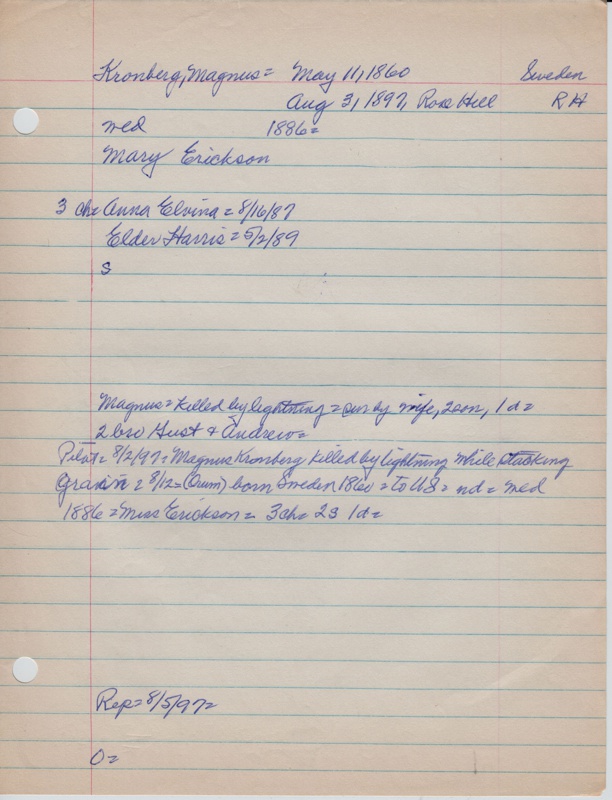 Kronberg, Magnus = May 11, 1860 Sweden
Aug 3, 1897, Rose Hill R H
med 1886 =
Mary Erickson
3 ch = Anna Elvina = 8/16/87
Elder Harris = 5/2/89
s
Magnus = killed by lightning = sur by wife, 2 son, 1 d =
2 bro Gust & Andrew =
Pilot = 8/2/97 = Magnus Kronberg killed by lightning while stacking
grain = 8/12 = born Sweden 1860 = to US = nd = med
1886 = Miss Erickson = 3 ch = 2s 1d =
Rep = 8/5/97 =
O =